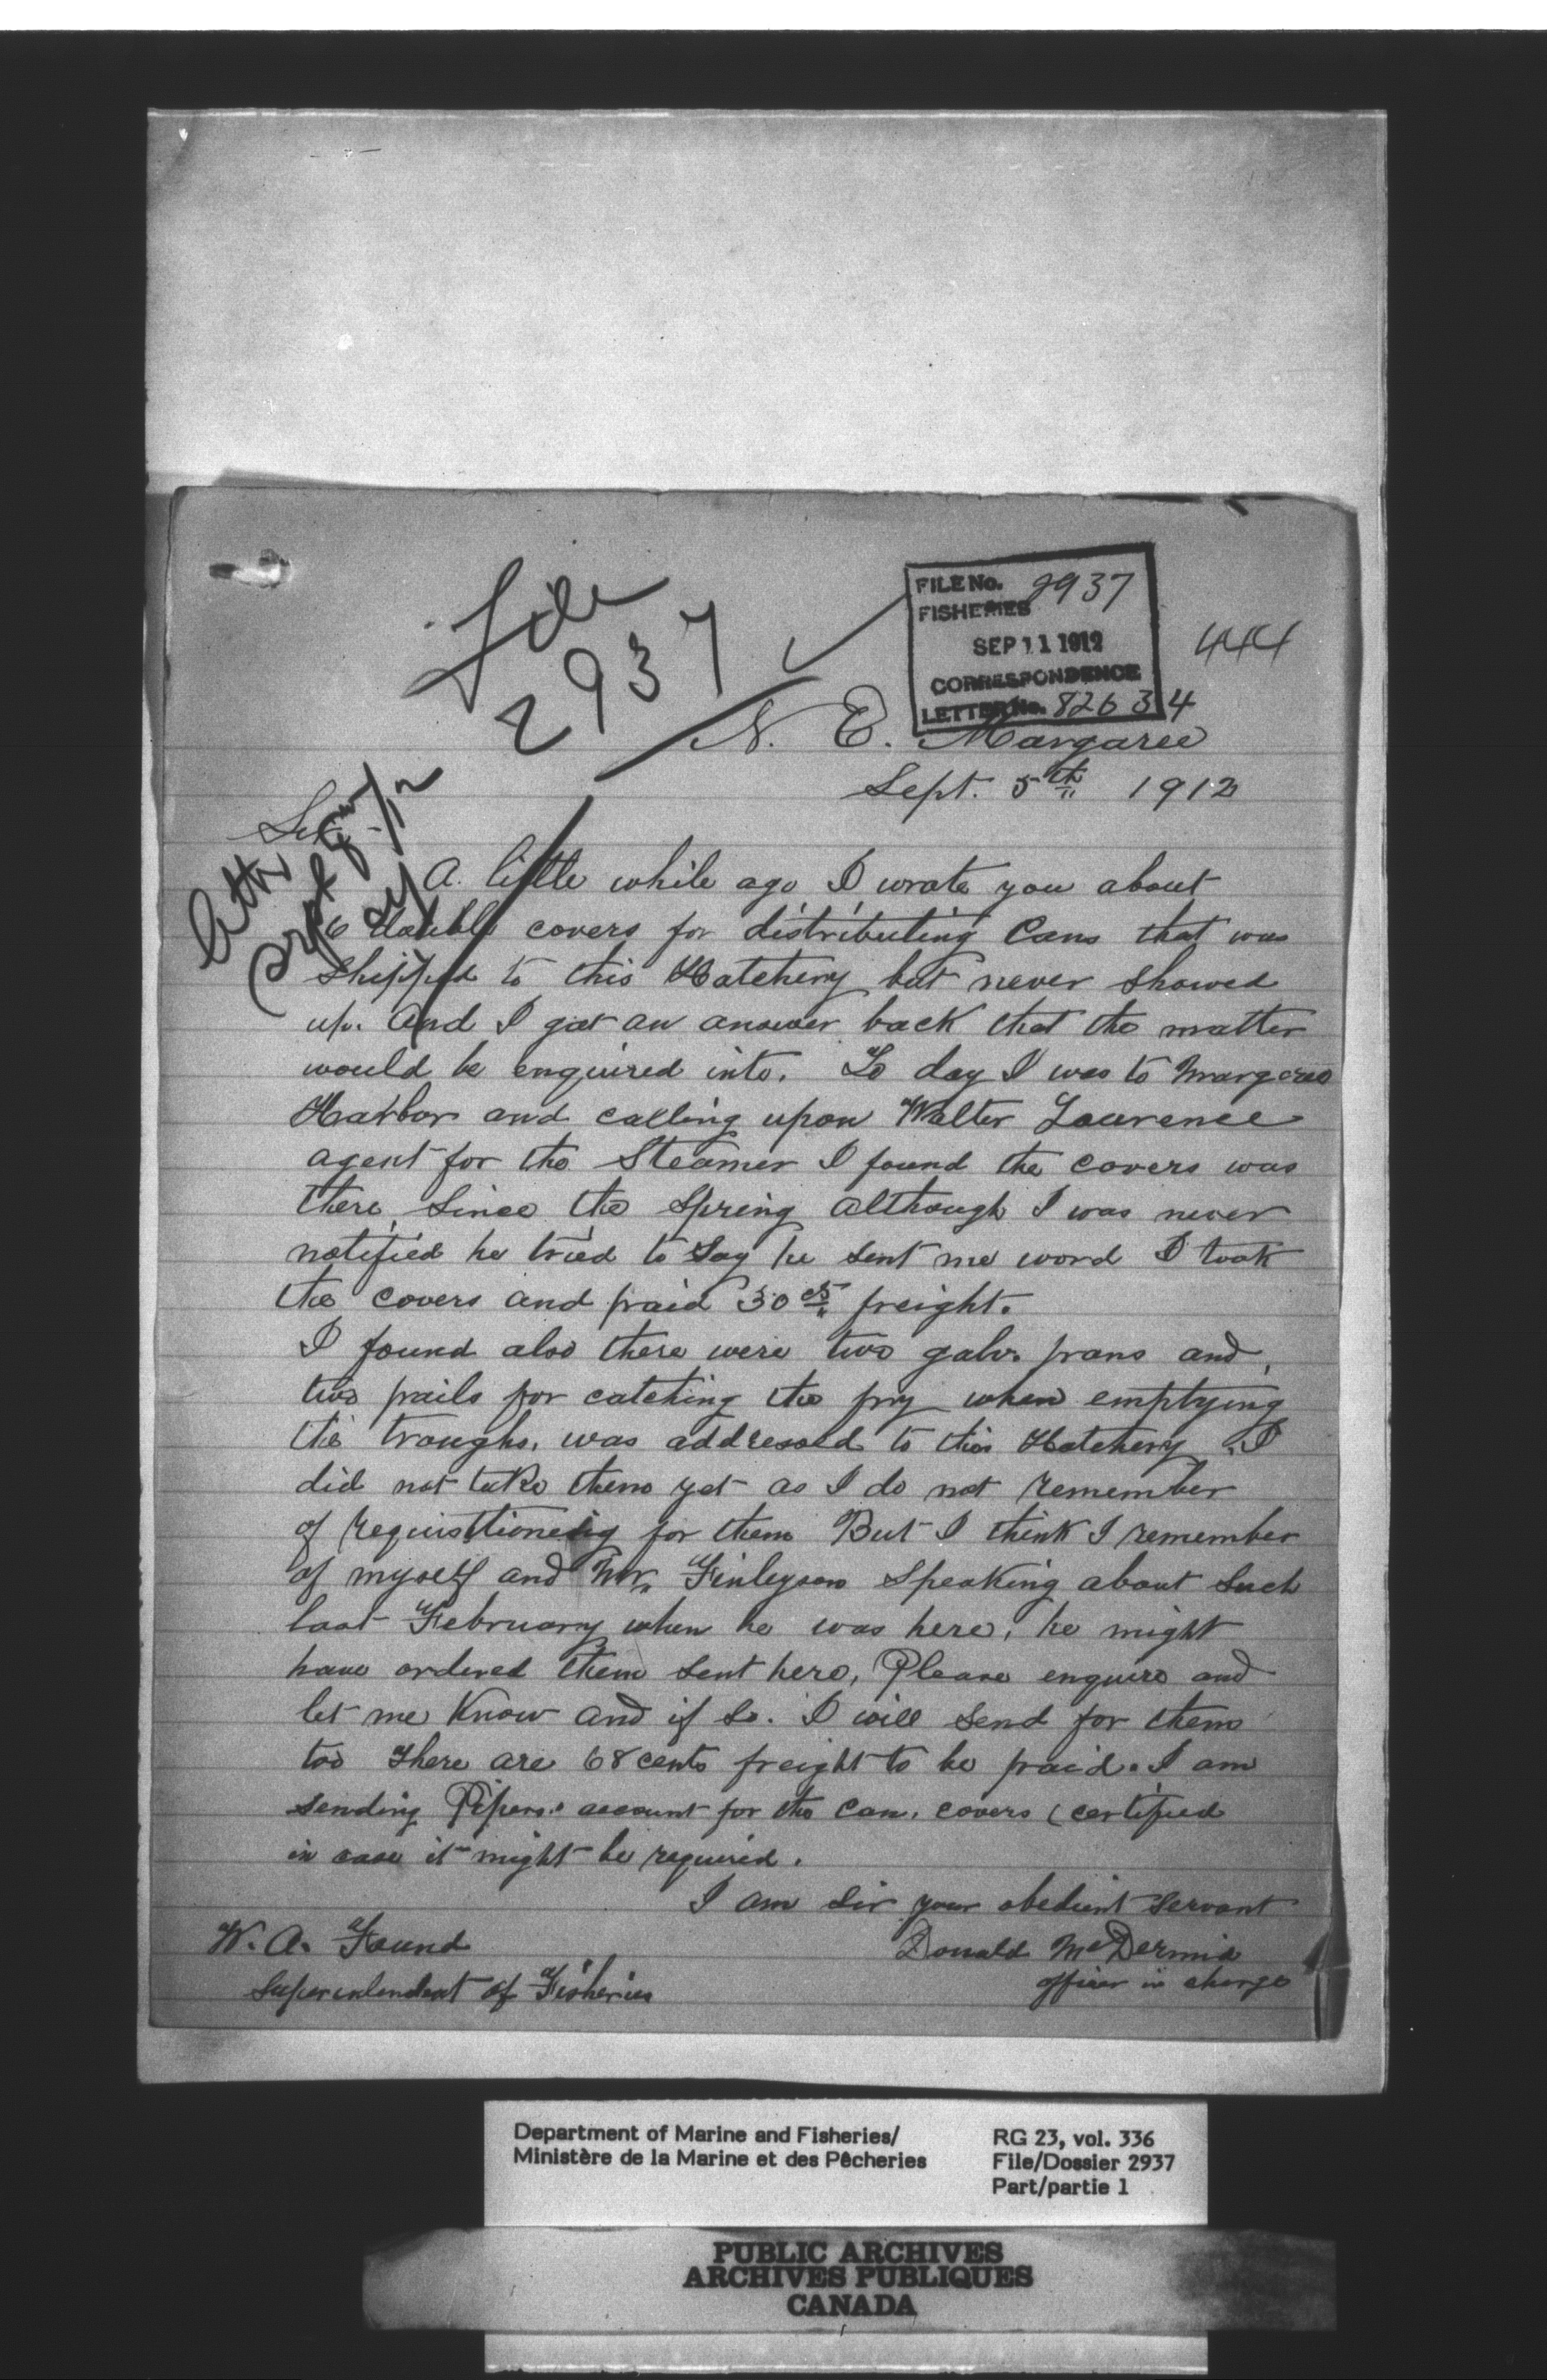 File
2937
FILE No. 2937
FISHERIES
SEP 11 1912
CORRESPONDENCE
LETTER No. 82634
444
N. E. Margaree
Sept. 5th 1912
Sir
A little while ago I wrote you about
6 double covers for distributing Cans that was
Shipped to this Hatchery but never showed
up. And I got an answer back that the matter
would be enquired into. To day I was to Margaree
Harbor and calling upon Walter Lawrence
agent for the Steamer I found the covers was
there since the Spring although I was never
notified he tried to say he sent me word I took
the covers and paid 30 cts freight.
I found also there were two galv. pans and
two pails for catching the fry when emptying
the troughs. was addressed to this Hatchery. I
did not take them yet as I do not remember
of requisitioneing for them But I think I remember
of myself and Mr. Finlyson Speaking about Such
last February when he was here, he might
have ordered them sent here, Please enquire and
let me Know and if So. I will send for them
too There are 68 cents freight to be paid. I am
sending Pipers account for the can. covers (certified
in case it might be required.
I am Sir your obedient Servant
W. A. Found
Donald McDermid
Superintendent of Fisheries
officer in charge
Department of Marine and Fisheries/
Ministère de la Marine et des Pêcheries
RG 23, vol. 336
File/Dossier 2937
Part/partie 1
PUBLIC ARCHIVES
ARCHIVES PUBLIQUES
CANADA